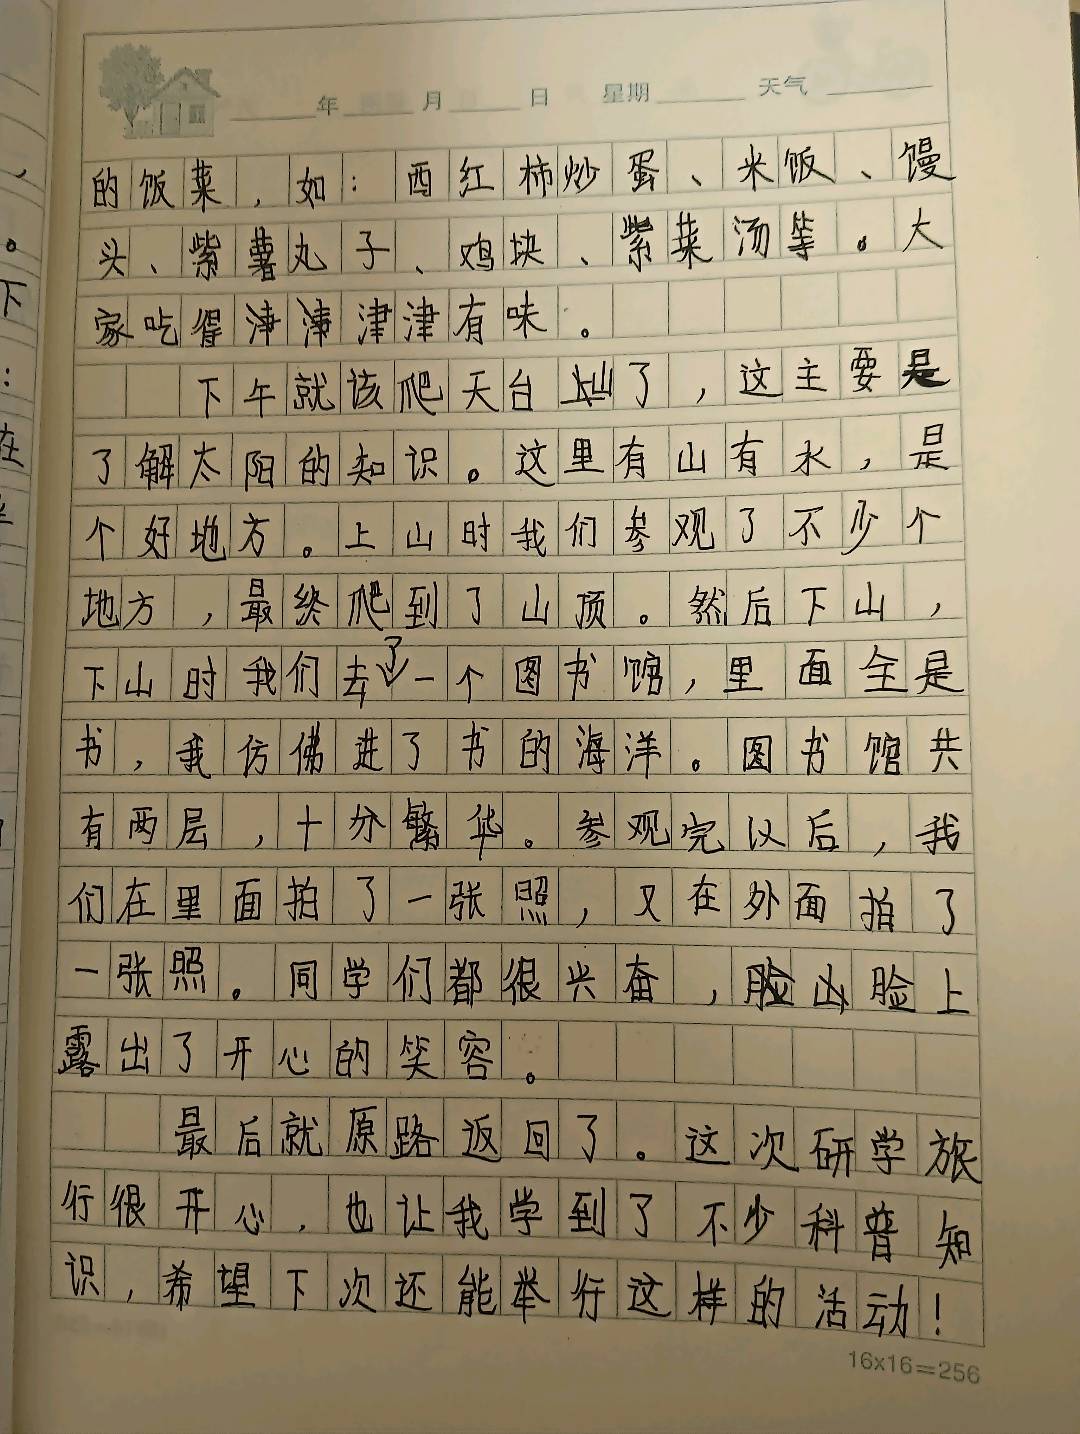 年 月 日 星期 天气
的饭菜，如：西红柿炒蛋、米饭、馒
头、紫薯丸子、鸡块、紫菜汤等。大
家吃得津津津津有味。
下午就该爬天台山了，这主要是
了解太阳的知识。这里有山有水，是
个好地方。上山时我们参观了不少个
地方，最终爬到了山顶。然后下山，
下山时我们去了一个图书馆，里面全是
书，我仿佛进了书的海洋。图书馆共
有两层，十分繁华。参观完以后，我
们在里面拍了一张照，又在外面拍了
一张照。同学们都很兴奋，脸上
露出了开心的笑容。
最后就原路返回了。这次研学旅
行很开心，也让我学到了不少科普知
识，希望下次还能举行这样的活动！
16x16=256